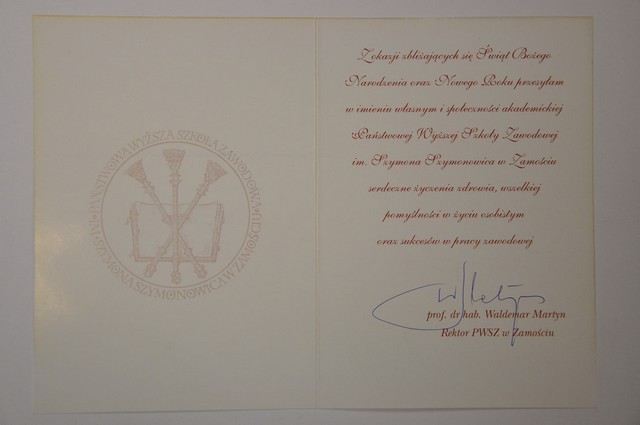 PAŃSTWOWA WYŻSZA SZKOŁA ZAWODOWA
IM. SZYMONA SZYMONOWICA W ZAMOŚCIU
Z okazji zbliżających się Świąt Bożego
Narodzenia oraz Nowego Roku przesyłam
w imieniu własnym i społeczności akademickiej
Państwowej Wyższej Szkoły Zawodowej
im. Szymona Szymonowica w Zamościu
serdeczne życzenia zdrowia, wszelkiej
pomyślności w życiu osobistym
oraz sukcesów w pracy zawodowej
prof. dr hab. Waldemar Martyn
Rektor PWSZ w Zamościu